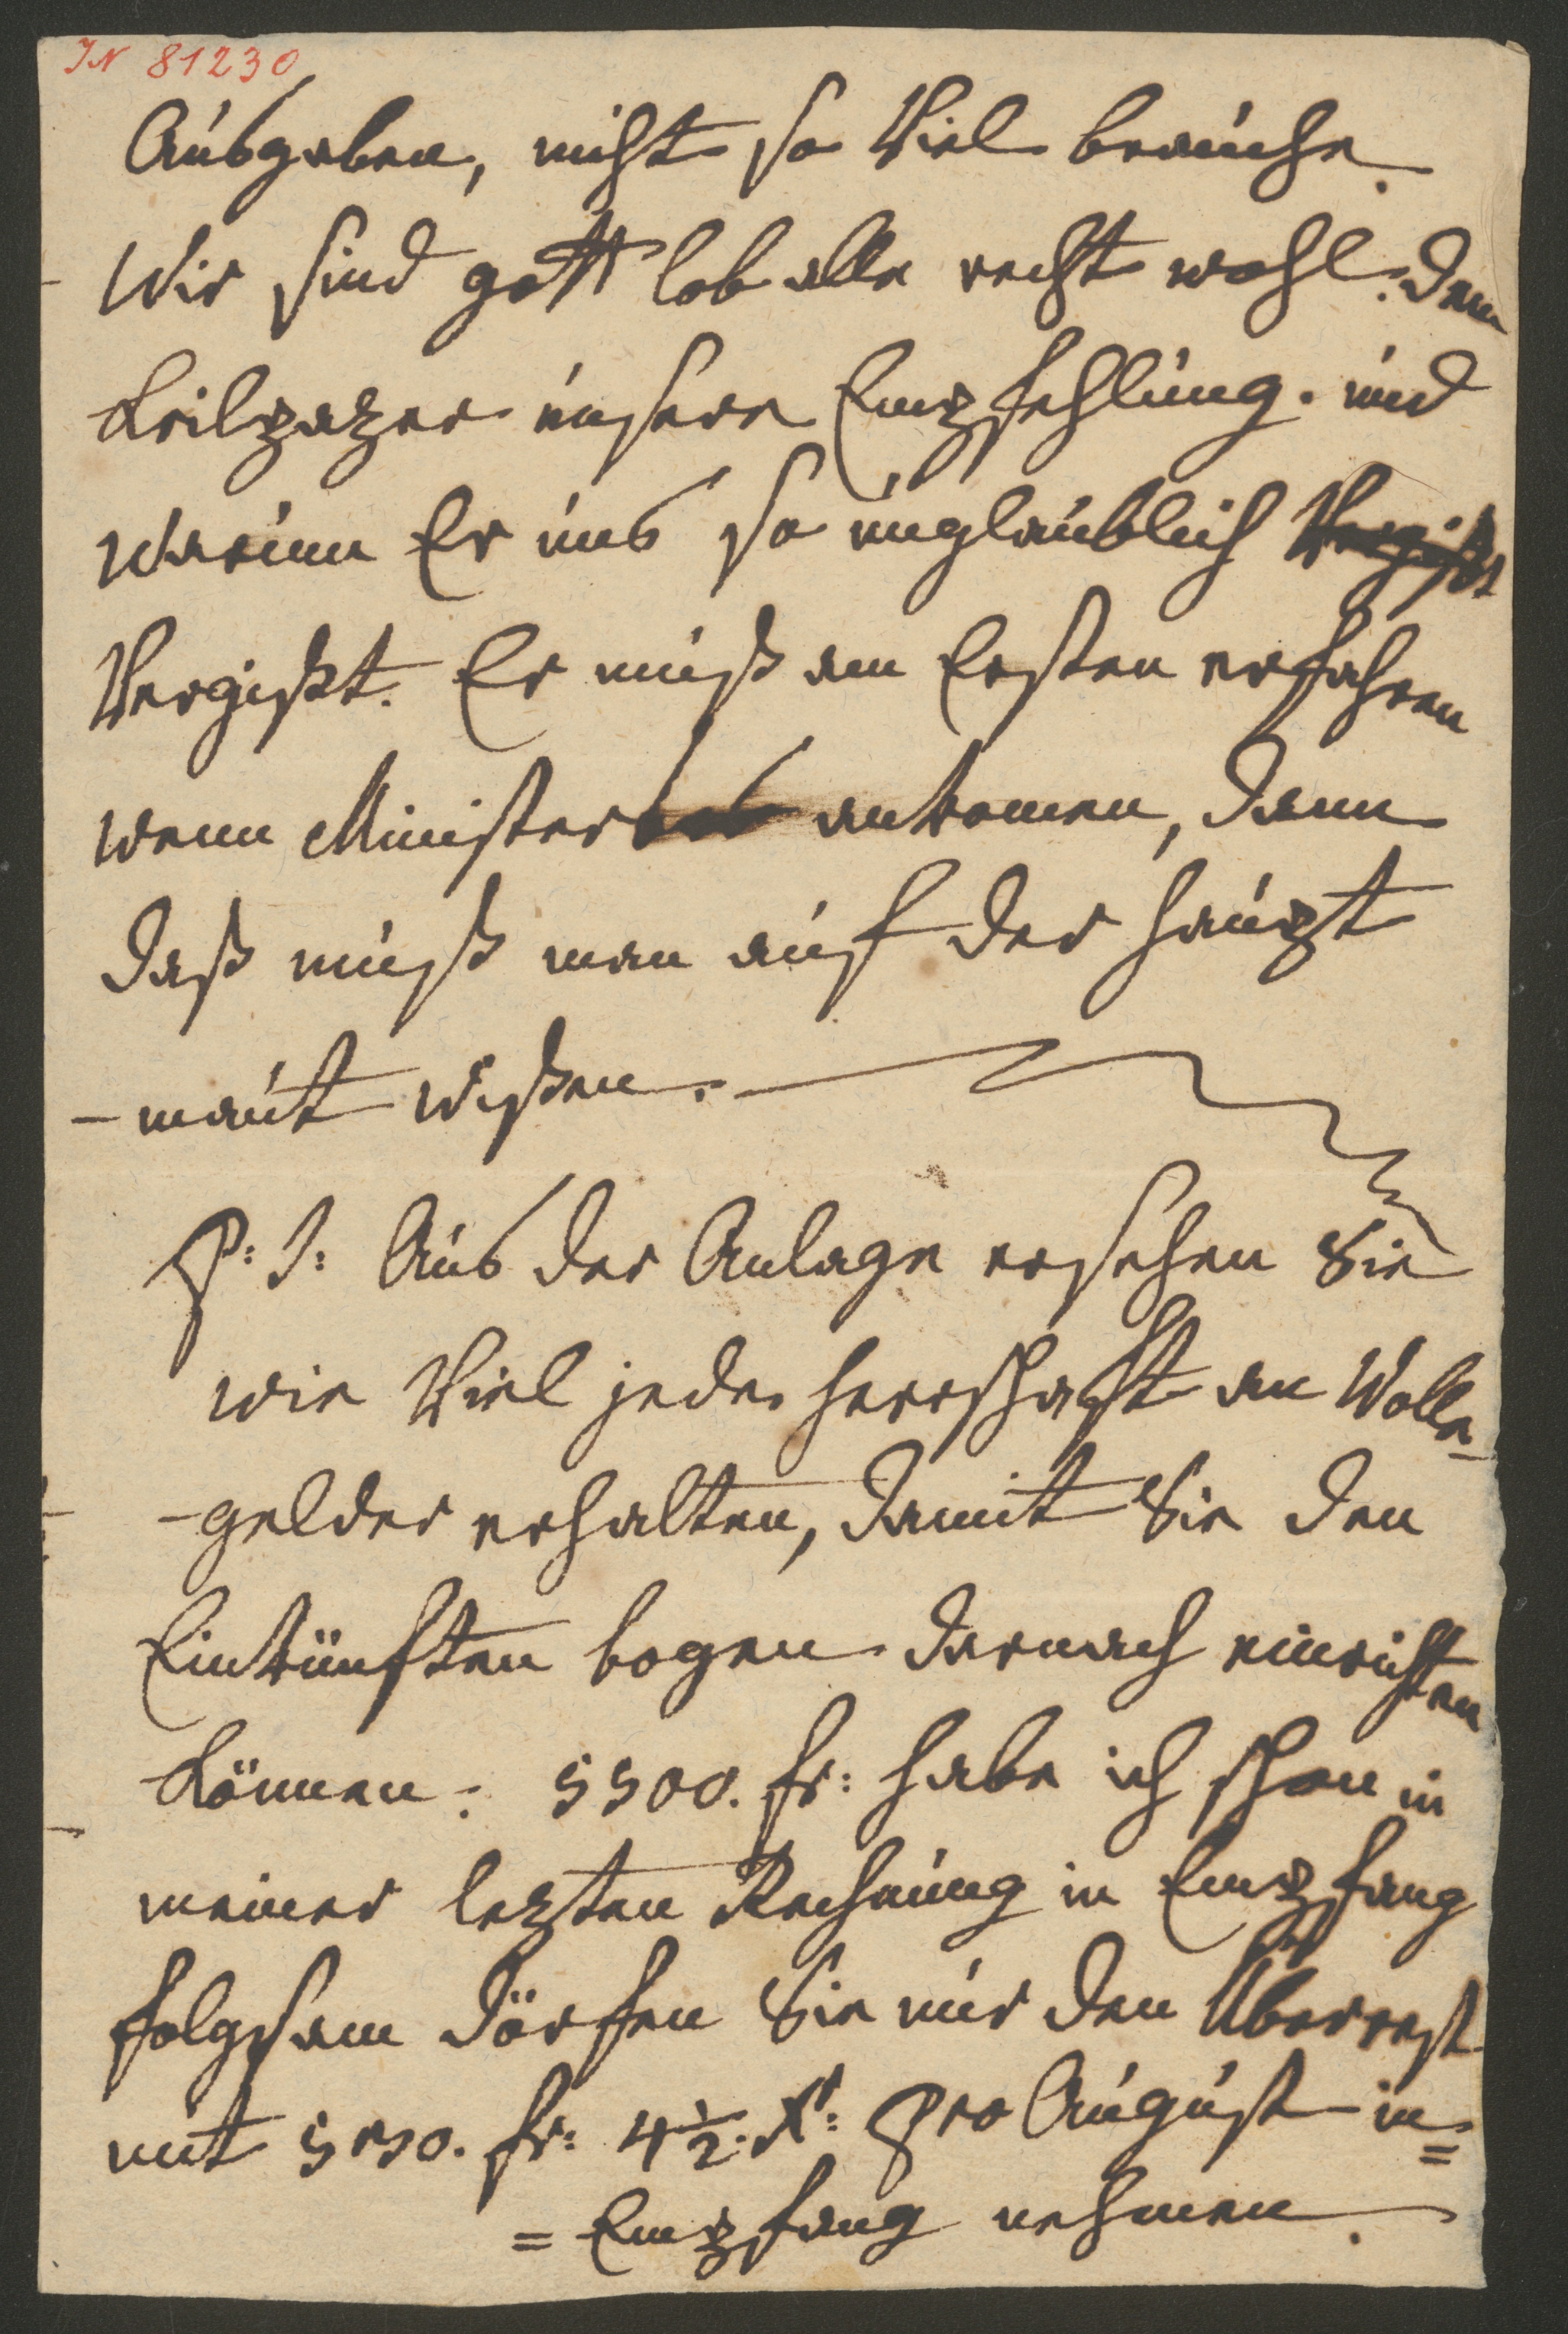 IN 81230
Ausgaben, nicht so Viel brauche.
Wir sind gott lob alle recht wohl. Dem
unsere Empfehlung. und
warum Er uns so unglaublich Vergißt
Vergißt. Er muß am Ersten erfahren
wenn Minister ankomen, denn
daß muß man auf der Haupt
-maut wißen.
P: S: Aus der Anlage ersehen Sie
wie Viel jede Herrschaft an Wolle-
-gelder erhalten, damit Sie den
Einkünften bogen darnach einrichten
können: 5500. fr: habe ich schon in
meiner lezten Rechnung in Empfang
folgsam dörfen Sie nur den Überrest
mit fr: 4 1/2. X: pro August in=
=Empfang nehmen.